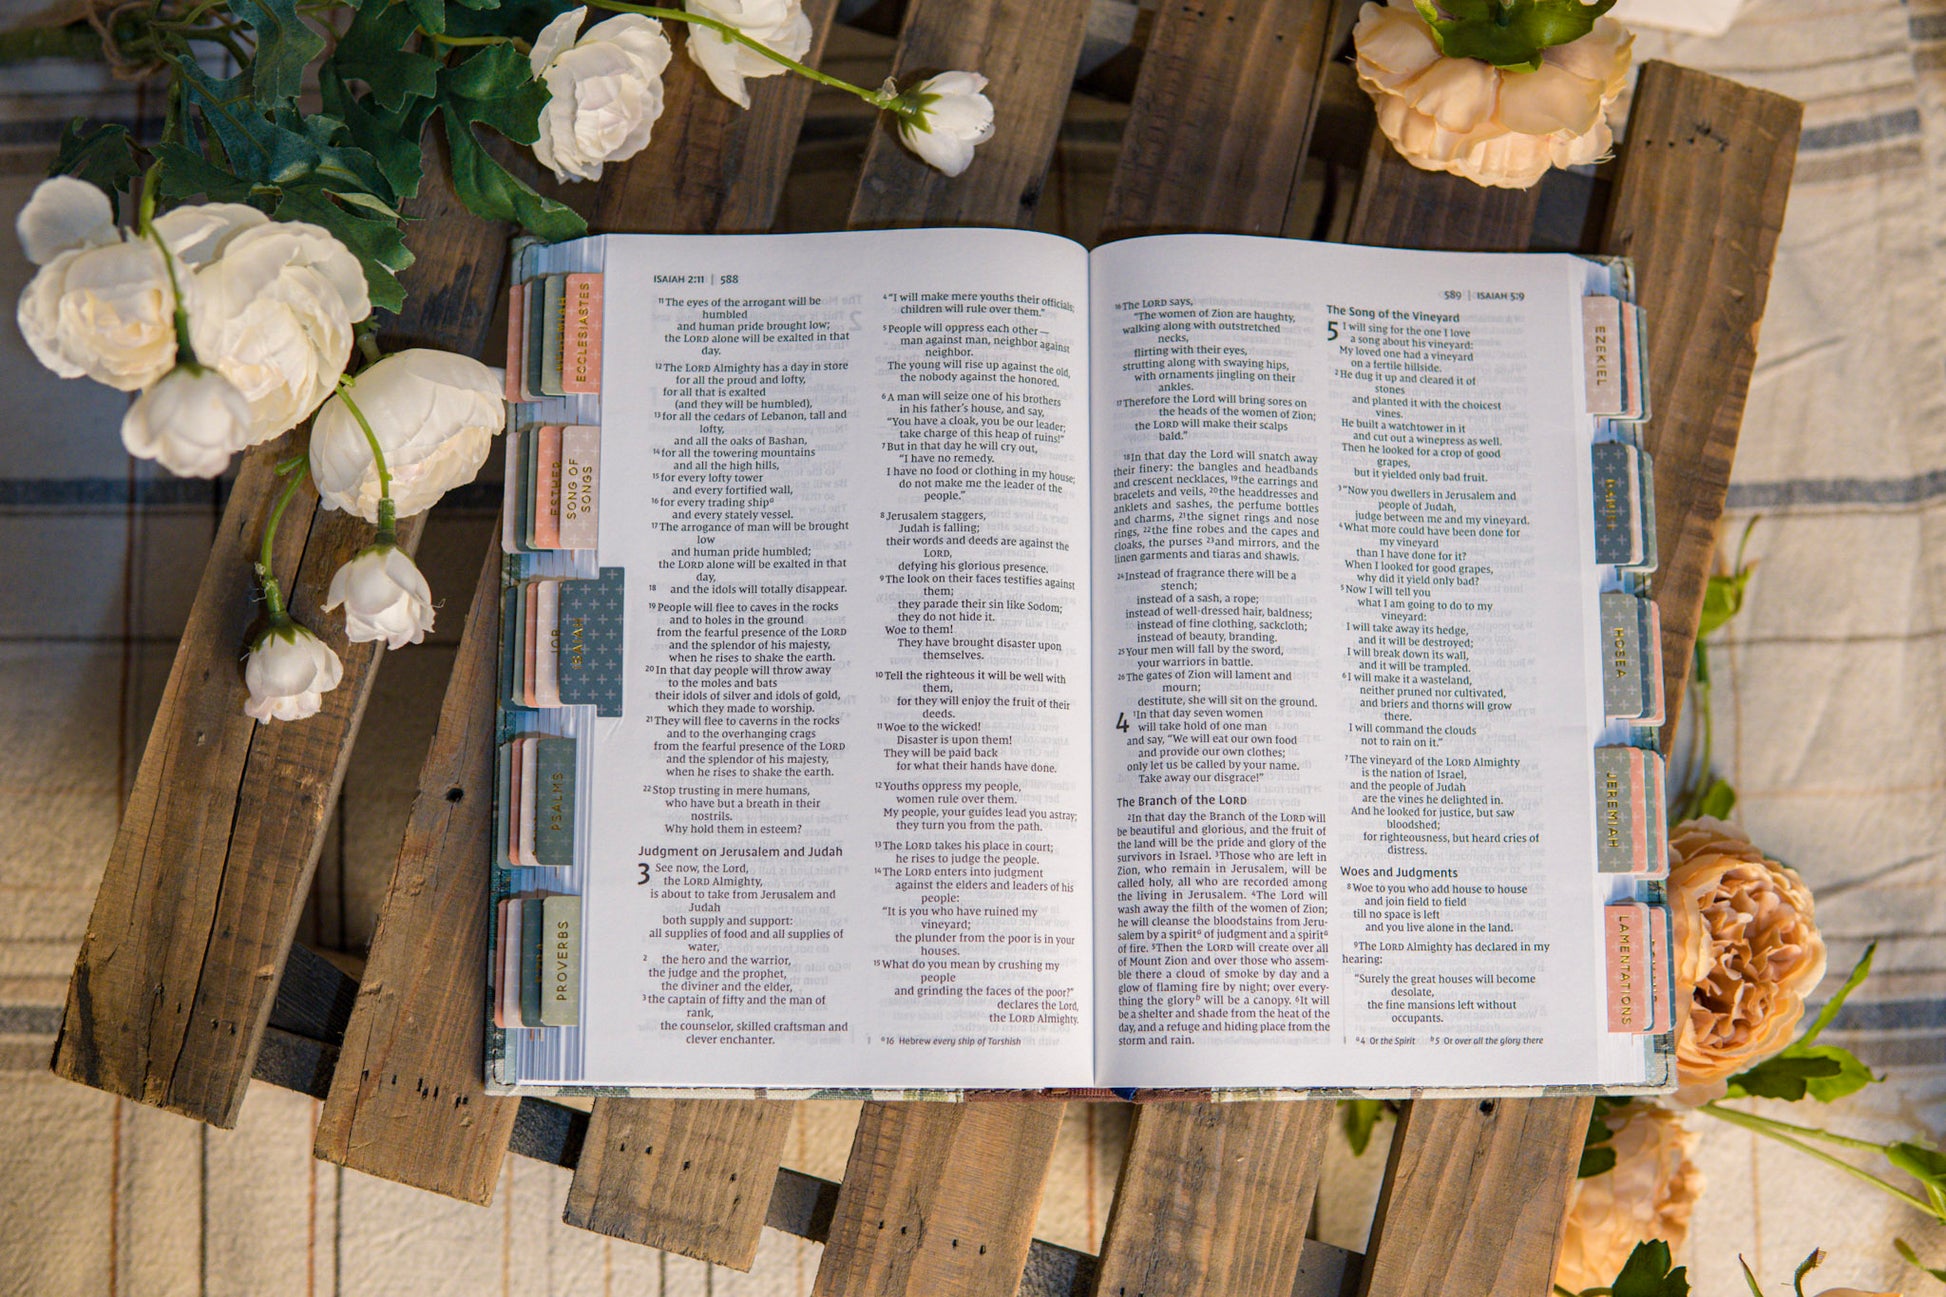 ISAIAH 2:11 | 588
11 The eyes of the arrogant will be
humbled
and human pride brought low;
the LORD alone will be exalted in that
day.
12 The LORD Almighty has a day in store
for all the proud and lofty,
for all that is exalted
(and they will be humbled),
13 for all the cedars of Lebanon, tall and
lofty,
and all the oaks of Bashan,
14 for all the towering mountains
and all the high hills,
15 for every lofty tower
and every fortified wall,
16 for every trading ship a
and every stately vessel.
17 The arrogance of man will be brought
low
and human pride humbled;
the LORD alone will be exalted in that
day,
18 and the idols will totally disappear.
19 People will flee to caves in the rocks
and to holes in the ground
from the fearful presence of the LORD
and the splendor of his majesty,
when he rises to shake the earth.
20 In that day people will throw away
to the moles and bats
their idols of silver and idols of gold,
which they made to worship.
21 They will flee to caverns in the rocks
and to the overhanging crags
from the fearful presence of the LORD
and the splendor of his majesty,
when he rises to shake the earth.
22 Stop trusting in mere humans,
who have but a breath in their
nostrils.
Why hold them in esteem?
Judgment on Jerusalem and Judah
3 See now, the Lord,
the LORD Almighty,
is about to take from Jerusalem and
Judah
both supply and support:
all supplies of food and all supplies of
water,
2 the hero and the warrior,
the judge and the prophet,
the diviner and the elder,
3 the captain of fifty and the man of
rank,
the counselor, skilled craftsman and
clever enchanter.
4 "I will make mere youths their officials;
children will rule over them."
5 People will oppress each other—
man against man, neighbor against
neighbor.
The young will rise up against the old,
the nobody against the honored.
6 A man will seize one of his brothers
in his father's house, and say,
"You have a cloak, you be our leader;
take charge of this heap of ruins!"
7 But in that day he will cry out,
"I have no remedy.
I have no food or clothing in my house;
do not make me the leader of the
people."
8 Jerusalem staggers,
Judah is falling;
their words and deeds are against the
LORD,
defying his glorious presence.
9 The look on their faces testifies against
them;
they parade their sin like Sodom;
they do not hide it.
Woe to them!
They have brought disaster upon
themselves.
10 Tell the righteous it will be well with
them,
for they will enjoy the fruit of their
deeds.
11 Woe to the wicked!
Disaster is upon them!
They will be paid back
for what their hands have done.
12 Youths oppress my people,
women rule over them.
My people, your guides lead you astray;
they turn you from the path.
13 The LORD takes his place in court;
he rises to judge the people.
14 The LORD enters into judgment
against the elders and leaders of his
people:
"It is you who have ruined my
vineyard;
the plunder from the poor is in your
houses.
15 What do you mean by crushing my
people
and grinding the faces of the poor?"
declares the Lord,
the LORD Almighty.
a 16 Hebrew every ship of Tarshish
589 | ISAIAH 5:9
16 The LORD says,
"The women of Zion are haughty,
walking along with outstretched
necks,
flirting with their eyes,
strutting along with swaying hips,
with ornaments jingling on their
ankles.
17 Therefore the Lord will bring sores on
the heads of the women of Zion;
the LORD will make their scalps
bald."
18 In that day the Lord will snatch away
their finery: the bangles and headbands
and crescent necklaces, 19 the earrings and
bracelets and veils, 20 the headdresses and
anklets and sashes, the perfume bottles
and charms, 21 the signet rings and nose
rings, 22 the fine robes and the capes and
cloaks, the purses 23 and mirrors, and the
linen garments and tiaras and shawls.
24 Instead of fragrance there will be a
stench;
instead of a sash, a rope;
instead of well-dressed hair, baldness;
instead of fine clothing, sackcloth;
instead of beauty, branding.
25 Your men will fall by the sword,
your warriors in battle.
26 The gates of Zion will lament and
mourn;
destitute, she will sit on the ground.
4 1 In that day seven women
will take hold of one man
and say, "We will eat our own food
and provide our own clothes;
only let us be called by your name.
Take away our disgrace!"
The Branch of the LORD
2 In that day the Branch of the LORD will
be beautiful and glorious, and the fruit of
the land will be the pride and glory of the
survivors in Israel. 3 Those who are left in
Zion, who remain in Jerusalem, will be
called holy, all who are recorded among
the living in Jerusalem. 4 The Lord will
wash away the filth of the women of Zion;
he will cleanse the bloodstains from Jeru-
salem by a spirit a of judgment and a spirit a
of fire. 5 Then the LORD will create over all
of Mount Zion and over those who assem-
ble there a cloud of smoke by day and a
glow of flaming fire by night; over every-
thing the glory b will be a canopy. 6 It will
be a shelter and shade from the heat of the
day, and a refuge and hiding place from the
storm and rain.
The Song of the Vineyard
5 I will sing for the one I love
a song about his vineyard:
My loved one had a vineyard
on a fertile hillside.
2 He dug it up and cleared it of
stones
and planted it with the choicest
vines.
He built a watchtower in it
and cut out a winepress as well.
Then he looked for a crop of good
grapes,
but it yielded only bad fruit.
3 "Now you dwellers in Jerusalem and
people of Judah,
judge between me and my vineyard.
4 What more could have been done for
my vineyard
than I have done for it?
When I looked for good grapes,
why did it yield only bad?
5 Now I will tell you
what I am going to do to my
vineyard:
I will take away its hedge,
and it will be destroyed;
I will break down its wall,
and it will be trampled.
6 I will make it a wasteland,
neither pruned nor cultivated,
and briers and thorns will grow
there.
I will command the clouds
not to rain on it."
7 The vineyard of the LORD Almighty
is the nation of Israel,
and the people of Judah
are the vines he delighted in.
And he looked for justice, but saw
bloodshed;
for righteousness, but heard cries of
distress.
Woes and Judgments
8 Woe to you who add house to house
and join field to field
till no space is left
and you live alone in the land.
9 The LORD Almighty has declared in my
hearing:
"Surely the great houses will become
desolate,
the fine mansions left without
occupants.
a 4 Or the Spirit b 5 Or over all the glory there
ECCLESIASTES
ESTHER
SONG OF
SONGS
JOB
ISAIAH
PSALMS
PROVERBS
EZEKIEL
HOSEA
JEREMIAH
LAMENTATIONS